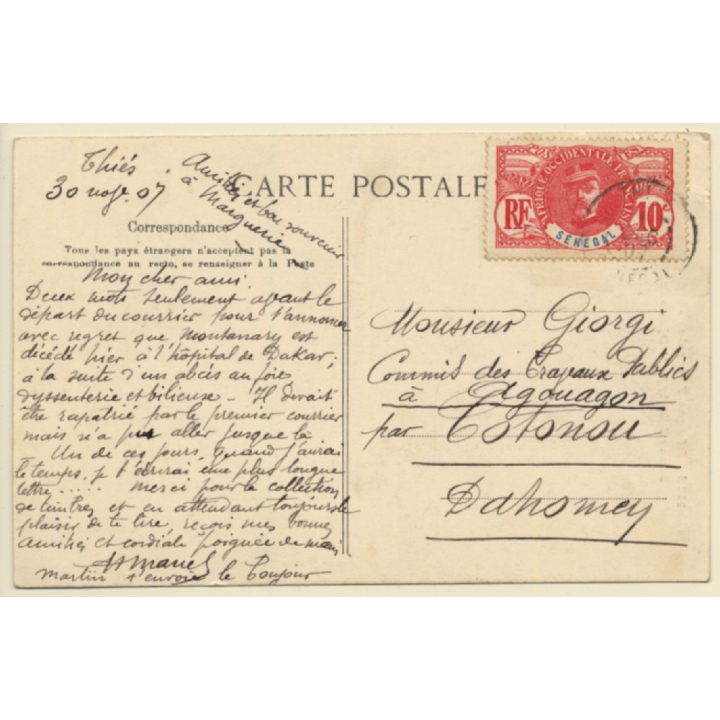 Thiés
30 nov. 07
Amitiés et bon souvenir
à Marguerite
CARTE POSTALE
Correspondance
Tous les pays étrangers n'acceptent pas la
correspondance au recto, se renseigner à la Poste
Mon cher ami.
Deux mots seulement avant le
départ du courrier pour t'annoncer
avec regret que Montanary est
décédé hier à l'hôpital de Dakar;
à la suite d'un abcès au foie
dyssenterie et bilieuse - Il devait
être rapatrié par le premier courrier
mais n'a pu aller jusque là
Un de ces jours, quand j'aurai
le temps, je t'écrirai une plus longue
lettre ..... Merci pour la collection
de timbres et en attendant toujours le
plaisir de te lire, reçois mes bonnes
amitiés et cordiale poignée de main
Martin t'envoie le bonjour
AFRIQUE OCCIDENTALE FRANÇAISE
RF
10
SÉNÉGAL
Monsieur Giorgi
Commis des Travaux Publics
à Agouagon
par Cotonou
Dahomey